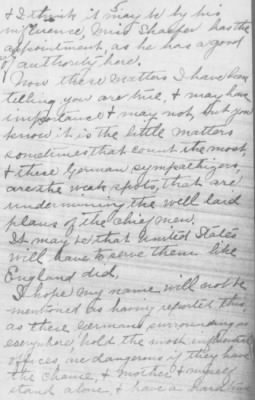 & I think it may be by his
influence, Miss Shaefer has the
appointment, as he has a good
authority here.
Now these matters I have been
telling you are true, & may have
importance & may not, but you
know it is the little matters
sometimes that count the most,
& these German sympathizers,
are the weak spots, that are
undermining the well laid
plans of the chief men.
It may be that United States
will have to serve them like
England did.
I hope my name will not be
mentioned as having reported this,
as these Germans surrounding us
everywhere hold the most influential
offices are dangerous if they have
the chance, & mother & myself
stand alone, & have a hard time